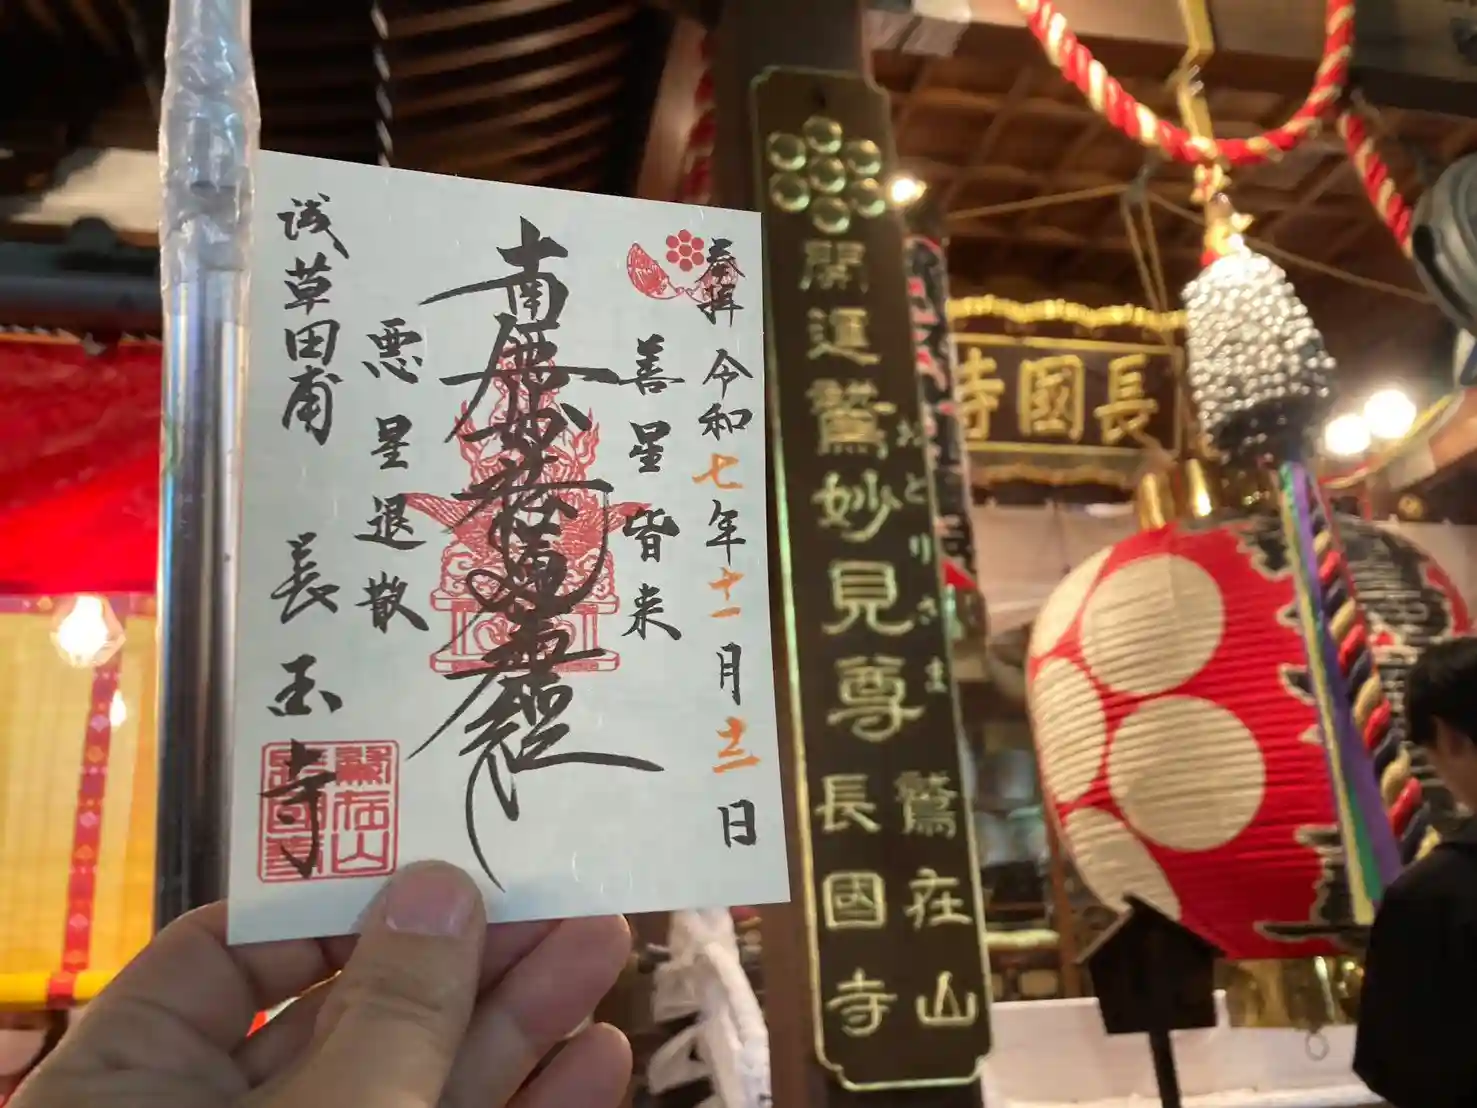 奉拝
令和七年十一月十二日
善星皆来
南無妙法蓮華経
悪星退散
浅草田甫
長国寺
鷲在山
長國寺
開運鷲妙見尊
おとりさま
鷲在山
長國寺
長國寺